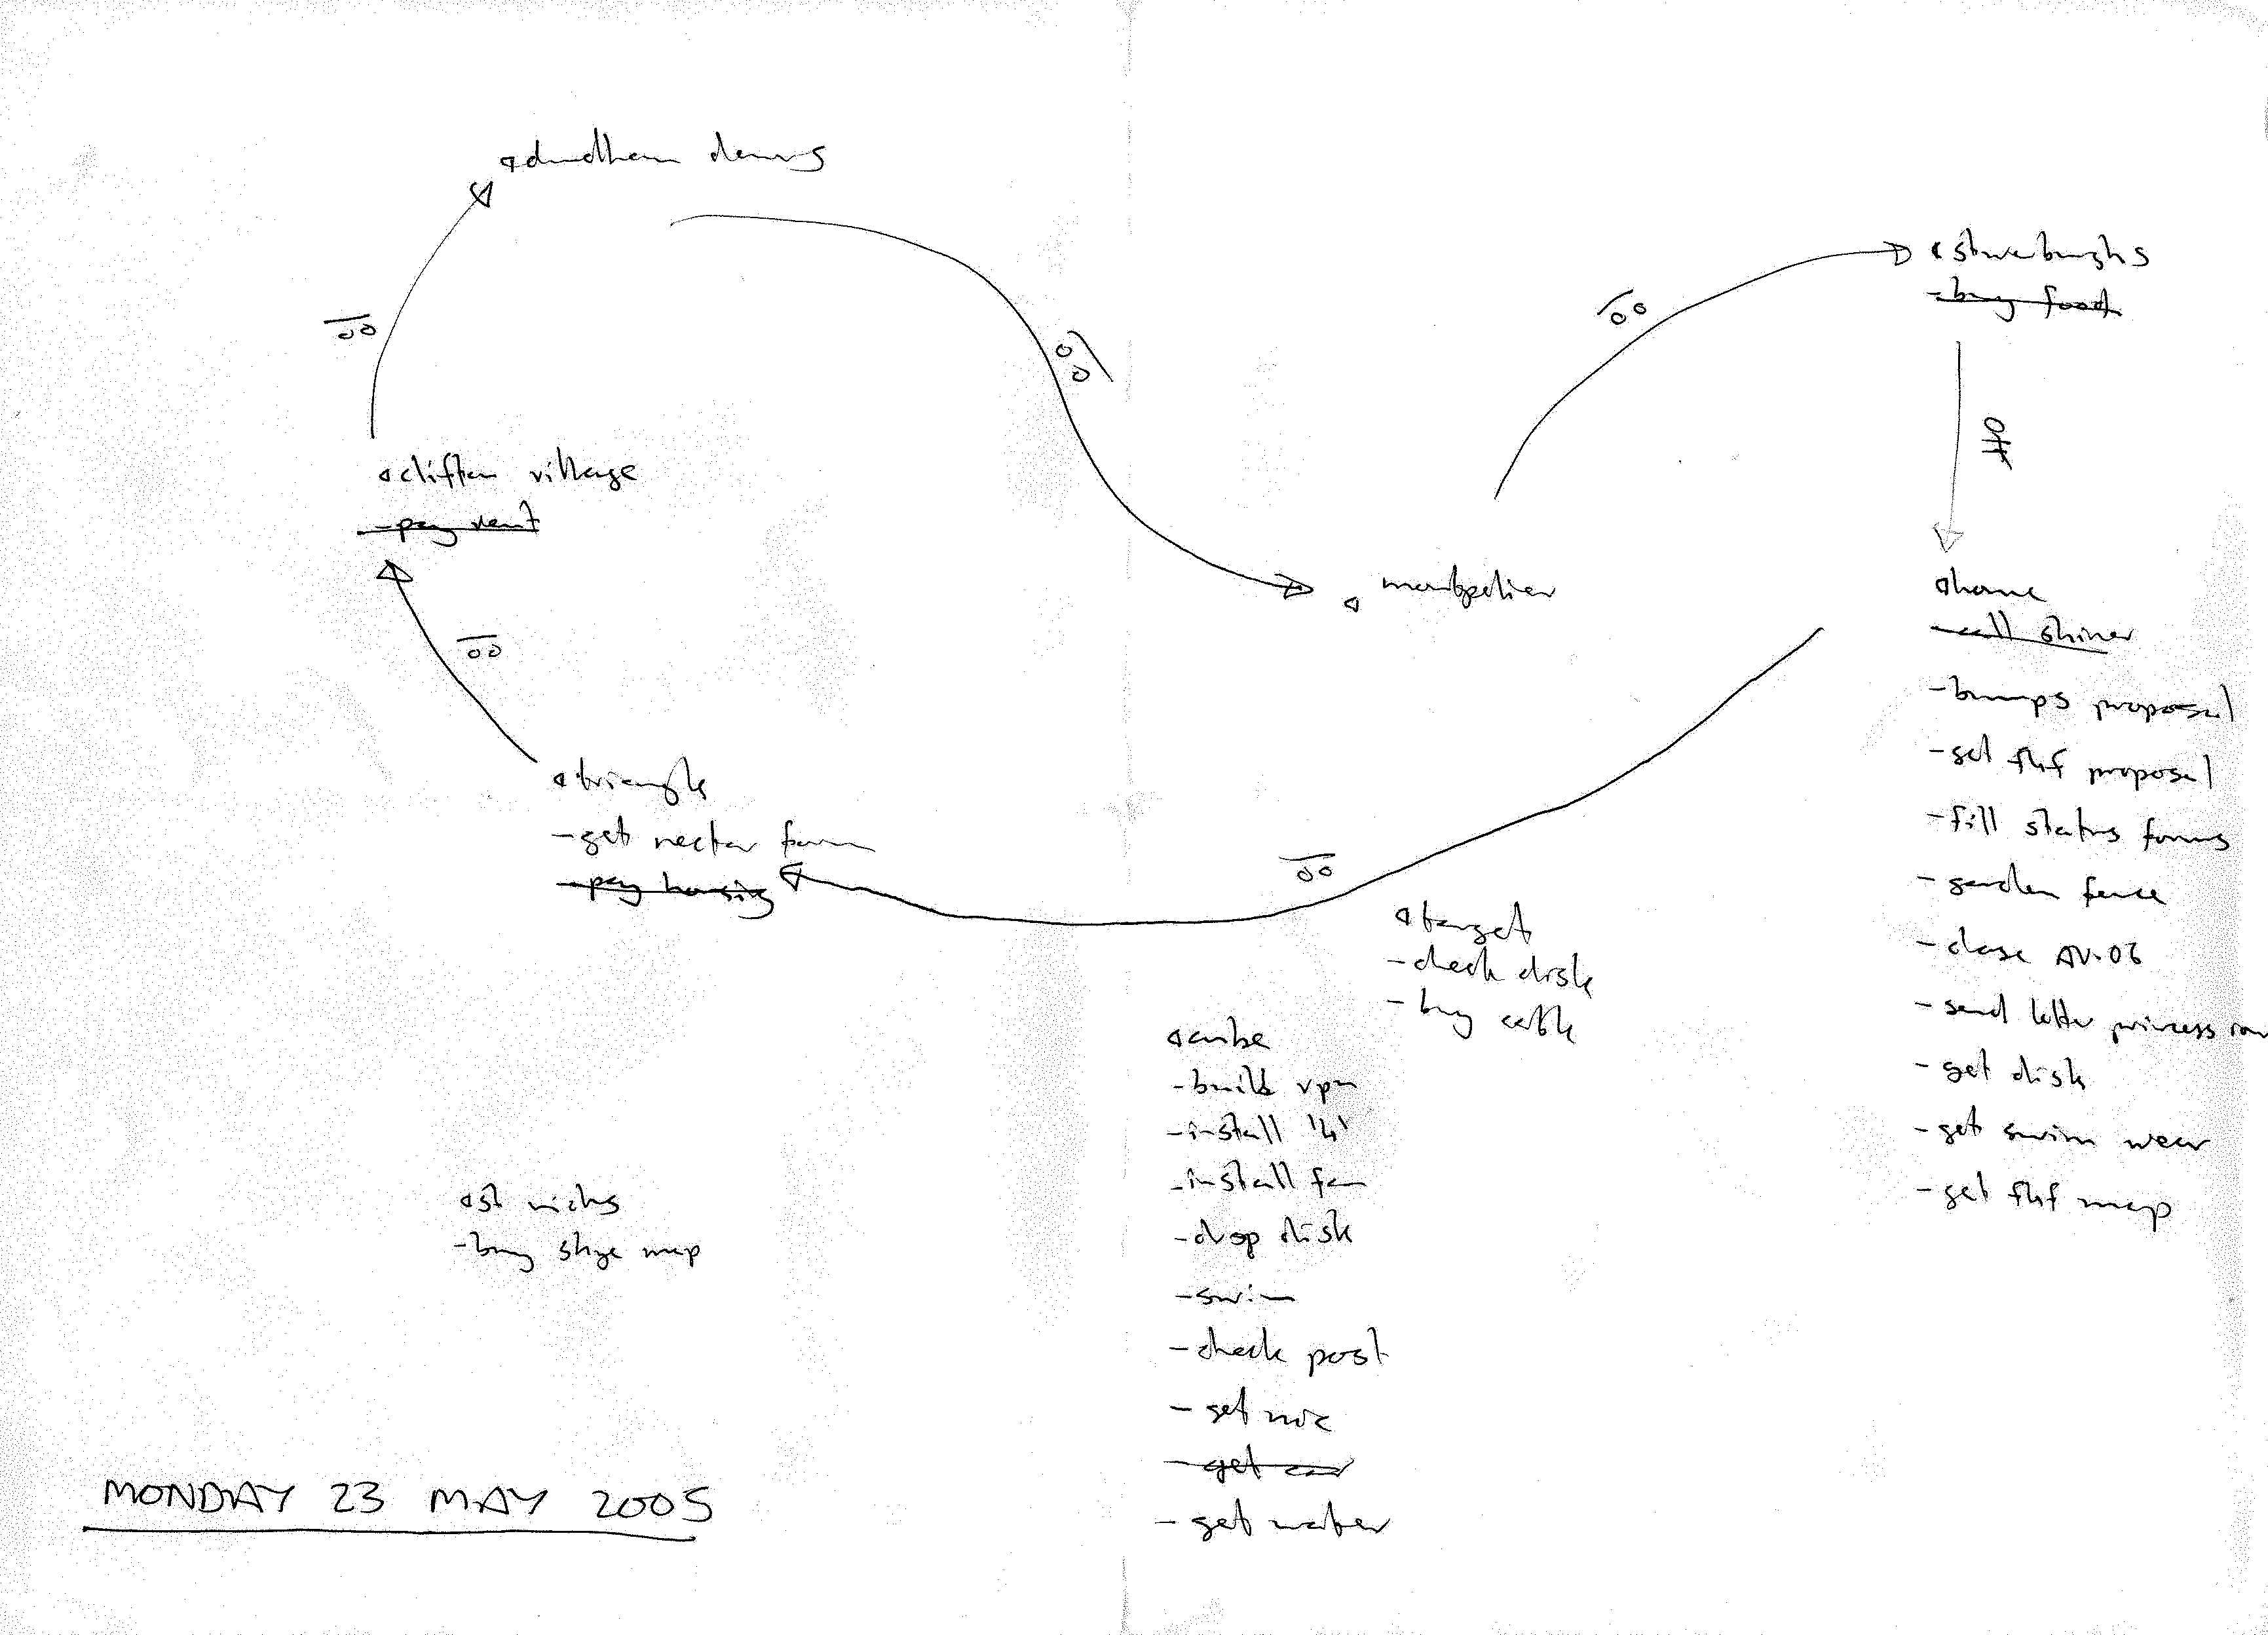 durdham downs
stowerbanghs
- buy food
clifton village
- pay rent
montpelier
home
- call shiner
- bumps proposal
- get fhf proposal
- fill status forms
- garden fence
- close AV-06
- send letter princess row
- get disk
- get swim wear
- get fhf map
triangle
- get nectar form
- pay housing
target
- check disk
- buy cable
cube
- build vpn
- install '4'
- install fan
- drop disk
- swim
- check post
- get nic
- get car
- get water
st nichs
- buy skye map
MONDAY 23 MAY 2005